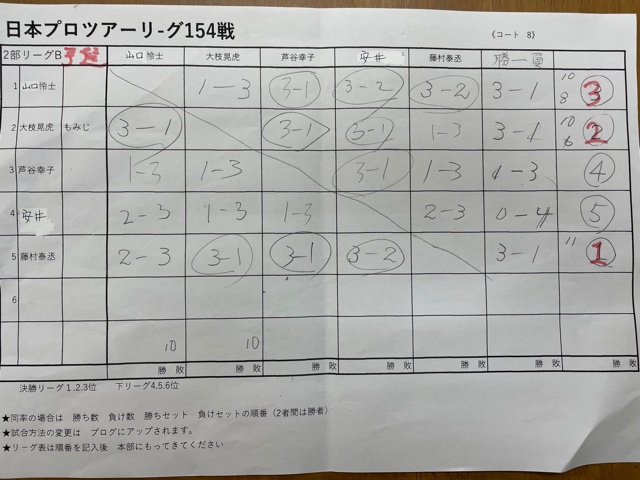 日本プロツアーリ-グ154戦
《コート 8》
2部リーグB 予選 山口怜士 大枝晃虎 芦谷幸子 安井 藤村泰丞 勝-負
1 山口怜士 1-3 3-1 3-2 3-2 3-1 10 8 3
2 大枝晃虎 もみじ 3-1 3-1 3-1 1-3 3-1 10 6 2
3 芦谷幸子 1-3 1-3 3-1 1-3 1-3 4
4 安井 2-3 1-3 1-3 2-3 0-4 5
5 藤村泰丞 2-3 3-1 3-1 3-2 3-1 11 1
6
10 10
勝 敗 勝 敗 勝 敗 勝 敗 勝 敗 勝 敗 勝 敗
決勝リーグ1.2.3位 下リーグ4.5.6位
★同率の場合は 勝ち数 負け数 勝ちセット 負けセットの順番(2者間は勝者)
★試合方法の変更は ブログにアップされます。
★リーグ表は順番を記入後 本部にもってきてください